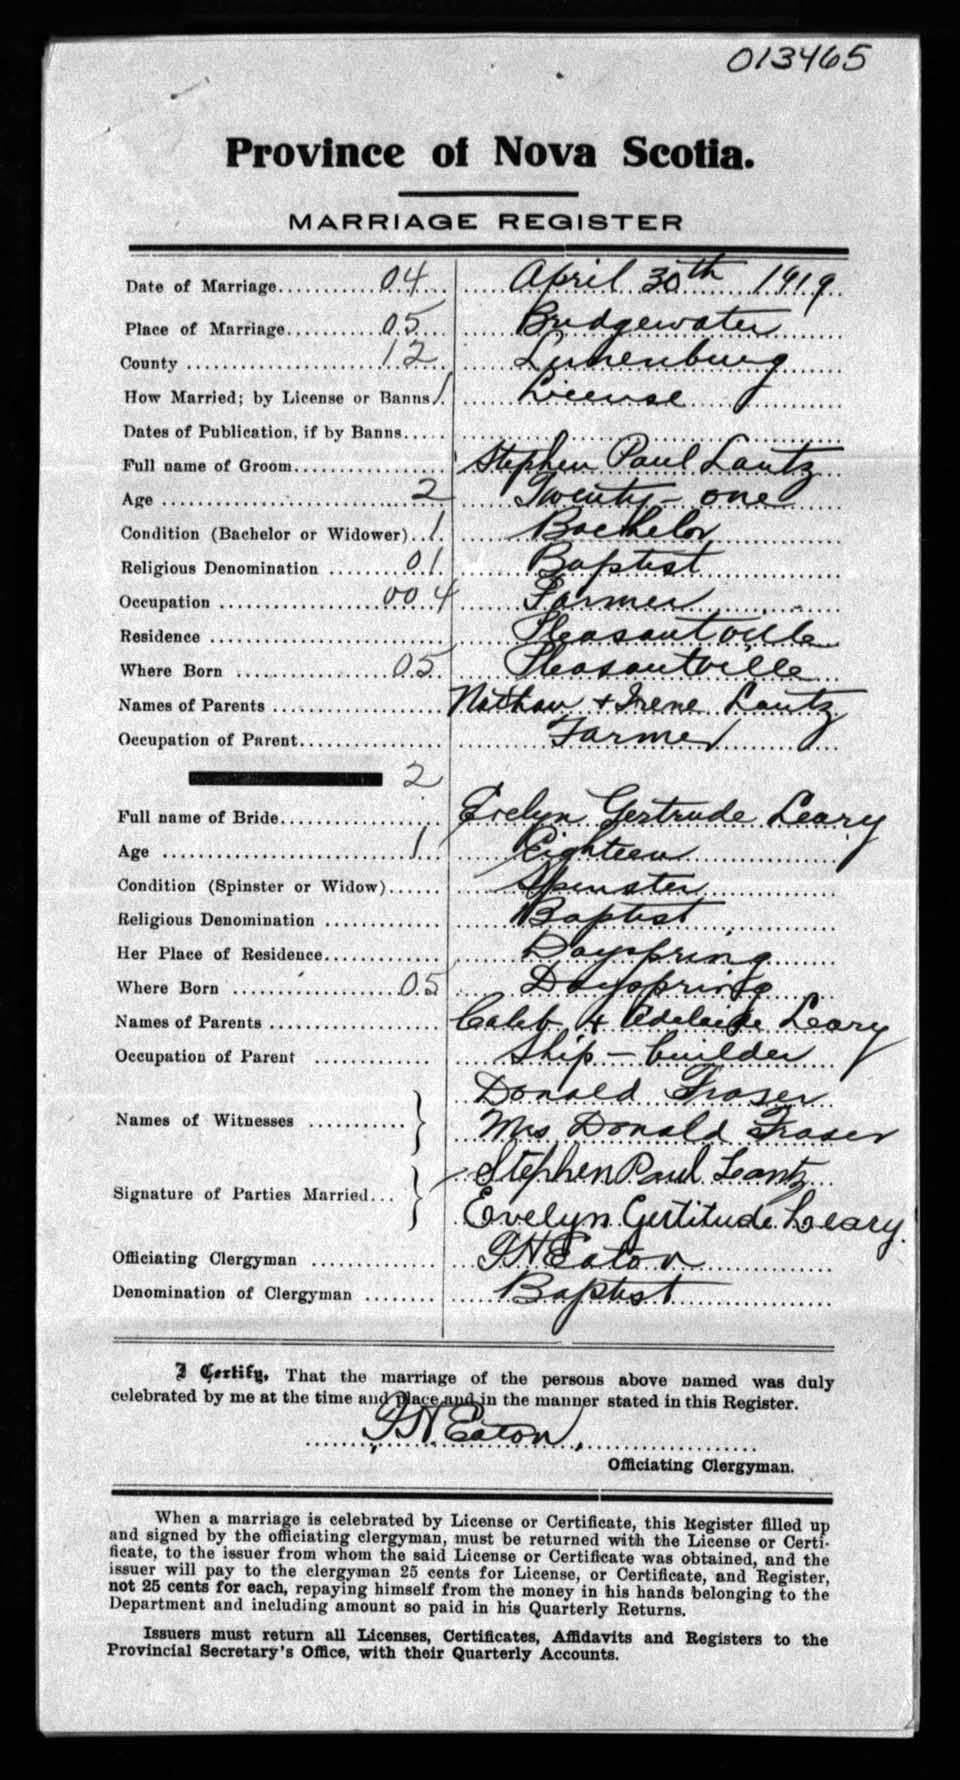 013465
Province of Nova Scotia.
MARRIAGE REGISTER
Date of Marriage............04.... April 30th 1919
Place of Marriage..........05.... Bridgewater
County ..........................12 Lunenburg
How Married; by License or Banns 1. License
Dates of Publication, if by Banns.....
Full name of Groom.................. Stephen Paul Lantz
Age ................................2 Twenty-one
Condition (Bachelor or Widower)..1. Bachelor
Religious Denomination ........01. Baptist
Occupation ....................004 Farmer
Residence ............................ Pleasantville
Where Born ....................05 Pleasantville
Names of Parents .................... Nathan & Irene Lantz
Occupation of Parent................. Farmer
2
Full name of Bride................... Evelyn Gertrude Leary
Age ................................1 Eighteen
Condition (Spinster or Widow)...... Spinster
Religious Denomination ............. Baptist
Her Place of Residence.............. Dayspring
Where Born ....................05 Dayspring
Names of Parents .................... Caleb & Adelaide Leary
Occupation of Parent .............. Ship-builder
Donald Fraser
Names of Witnesses ............
Mrs Donald Fraser
Stephen Paul Lantz
Signature of Parties Married...
Evelyn Gertitude Leary.
Officiating Clergyman .............. Eaton
Denomination of Clergyman ........ Baptist
I Certify, That the marriage of the persons above named was duly
celebrated by me at the time and place and in the manner stated in this Register.
Eaton
Officiating Clergyman.
When a marriage is celebrated by License or Certificate, this Register filled up
and signed by the officiating clergyman, must be returned with the License or Certi-
ficate, to the issuer from whom the said License or Certificate was obtained, and the
issuer will pay to the clergyman 25 cents for License, or Certificate, and Register,
not 25 cents for each, repaying himself from the money in his hands belonging to the
Department and including amount so paid in his Quarterly Returns.
Issuers must return all Licenses, Certificates, Affidavits and Registers to the
Provincial Secretary's Office, with their Quarterly Accounts.